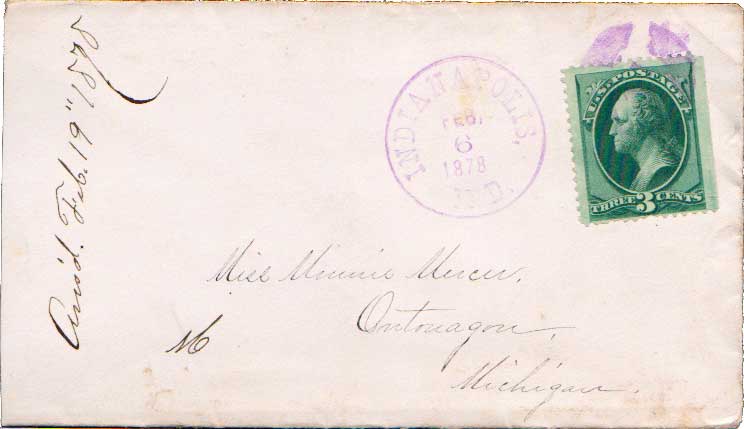 Ans'd. Feb. 19" 1878
INDIANAPOLIS,
FEB.
6
1878
IND.
U.S. POSTAGE
THREE 3 CENTS
Miss Minnie Mercer.
Ontonagon,
Michigan.